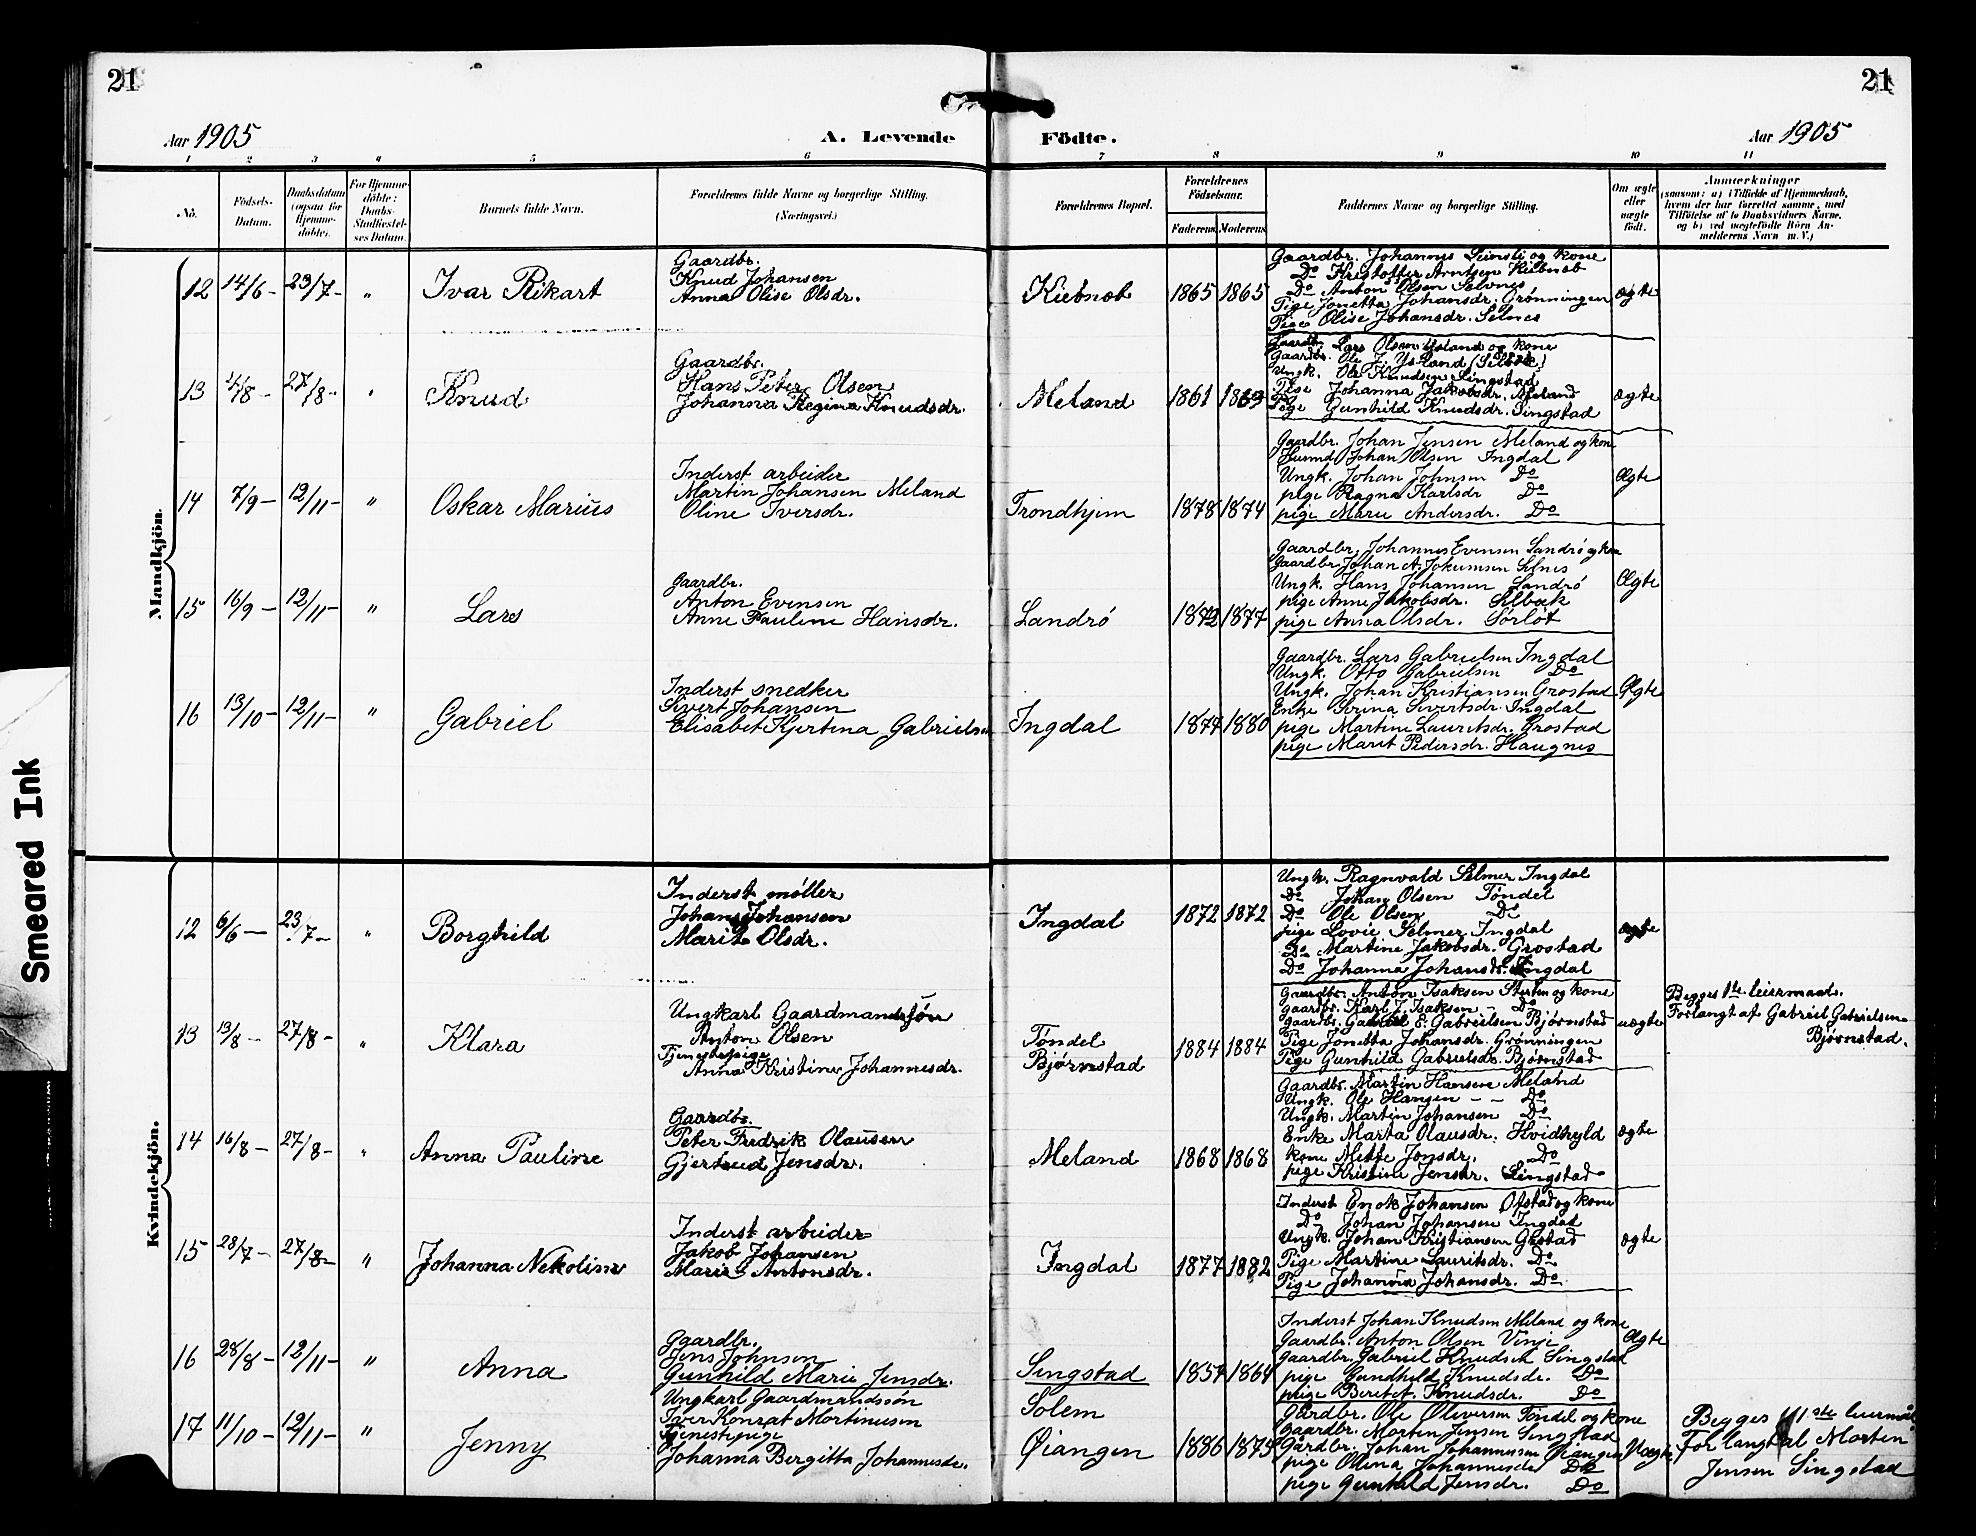 21
21
Aar 1905
A. Levende Födte.
Aar 1905
1 2 3 4 5 6 7 8 9 10 11
No.
Födsels-Datum.
Daabsdatum (ogsaa for Hjemmedöbte).
For Hjemmedöbte: Daabs-Stadfæstelses Datum.
Barnets fulde Navn.
Forældrenes fulde Navne og borgerlige Stilling. (Næringsvei.)
Forældrenes Bopæl.
Forældrenes Födselsaar.
Faderens. Moderens.
Faddernes Navne og borgerlige Stilling.
Om ægte eller uægte födt.
Anmærkninger
(saasom: a) i Tilfælde af Hjemmedaab, hvem der har forrettet samme, med Tilföielse af to Daabsvidners Navne, og b) ved uægtefödte Börn Anmelderens Navn m. V.)
Mandkjön.
12 14/6 - 23/7 - " Ivar Rikart
Gaardbr.
Knud Johansen
Anna Olise Olsdr.
Kiebnæb 1865 1865
Gaardbr. Johannes Leinsli og kone
Do Kristoffer Arntsen Kiebnæb
Do Anton Olsen Selvnes
Pige Jonetta Johansdr. Grønningen
Pige Olise Johansdr. Selnes
ægte
13 4/8 - 27/8 - " Knud
Gaardbr.
Hans Peter Olsen
Johanna Regina Knudsdr.
Meland 1861 1869
Gaardb. Lars Olsen Meland og kone
Gaardbr. Ole J. Ysland (Selbæk)
Ungk. Ole Knudsen Singstad
Pige Johanna Jakobsdr. Meland
Pige Gunhild Knudsdr. Singstad
ægte
14 7/9 - 12/11 - " Oskar Marius
Inderst arbeider
Martin Johansen Meland
Oline Iversdr.
Trondhjem 1878 1874
Gaardbr. Johan Jensen Meland og kone
Husmd Johan Olsen Ingdal
Ungk. Johan Johnsen Do
pige Ragna Karlsdr Do
pige Marie Andersdr. Do
Ægte
15 16/9 - 12/11 - " Lars
Gaardbr.
Anton Evensen
Anne Pauline Hansdr.
Landrø 1872 1877
Gaardbr. Johannes Evensen Landrø og kone
Gaardbr Johan A. Jokumsen Selnes
Ungk. Hans Johansen Landrø
pige Anne Jakobsdr. Selbæk
pige Anna Olsdr. Sørløt
Ægte
16 13/10 - 12/11 - " Gabriel
Inderst snedker
Sivert Johansen
Elisabet Kjertina Gabrielsen
Ingdal 1874 1880
Gaardbr. Lars Gabrielsen Ingdal
Ungk. Otto Gabrielsen Do
Ungk. Johan Kristiansen Grostad
Enke Serina Sivertsdr. Ingdal
pige Martine Lauritsdr. Grostad
pige Marit Pedersdr. Haugnes
Ægte
Kvindekjön.
12 6/6 - 23/7 - " Borghild
Inderst møller
Johan Johansen
Marit Olsdr.
Ingdal 1872 1872
Ungk. Ragnvald Selmer Ingdal
Do Johan Olsen Tøndel
Do Ole Olsen Do
pige Lovie Selmer Ingdal
Do Martine Jakobsdr. Grostad
Do Johanna Johansdr. Ingdal
ægte
13 13/8 - 27/8 - " Klara
Ungkarl Gaardmandssøn
Anton Olsen
Tjenestepige
Anna Kristine Johannesdr.
Tøndel
Bjørnstad 1884 1884
Gaardbr. Anton Isaksen Sterten og kone
Gaardbr. Karl J. Isaksen - Do
Gaardbr. Gabriel E. Gabrielsen Bjørnstad
Pige Jonetta Johansdr. Grønningen
Pige Gunhild Gabrielsdr. Bjørnstad
uægte
Begges 1te leiermaal.
Forlangt af Gabriel Gabrielsen
Bjørnstad.
14 16/8 - 27/8 - " Anna Pauline
Gaardbr.
Peter Fredrik Olausen
Gjertrud Jensdr.
Meland 1868 1868
Gaardbr. Martin Hansen Meland
Ungk. Ole Hansen - - Do
Ungk. Martin Johansen Do
Enke Marta Olausdr. Hvidhyld
kone Mette Jonsdr. Do
pige Kristine Jensdr. Singstad
ægte
15 28/7 - 27/8 - " Johanna Nekoline
Inderst arbeider
Jakob Johansen
Marie Antonsdr.
Ingdal 1877 1882
Inderst Enok Johansen Ofstad og kone
Do Johan Johansen Ingdal
Ungk. Johan Kristiansen Grostad
Pige Martine Lauritsdr. Do
Pige Johanna Johansdr. Do
ægte
16 28/8 - 12/11 - " Anna
Gaardbr.
Jens Johnsen
Gunhild Marie Jensdr.
Singstad 1854 1864
Inderst Johan Knudsen Meland og kone
Gaardbr. Anton Olsen Vinje
Gaardbr. Gabriel Knudsen Singstad
pige Gundhild Knudsdr. Do
pige Beret Knudsdr. Do
Ægte
17 11/10 - 12/11 - " Jenny
Ungkarl Gaardmandssøn
Iver Konrat Mortinusen
Tjenestepige
Johanna Bergitta Johannesdr.
Solem
Øiangen 1886 1875
Gardbr. Ole Oliversen Tøndel og kone
Gaardbr. Morten Jensen Singstad
Gardbr. Johan Johannessen Øiangen
pige Olina Johannesdr Do
pige Gunhild Jensdr. Do
Uægte
Begges 1ste leiermål
Forlangt al Morten
Jensen Singstad
Smeared Ink